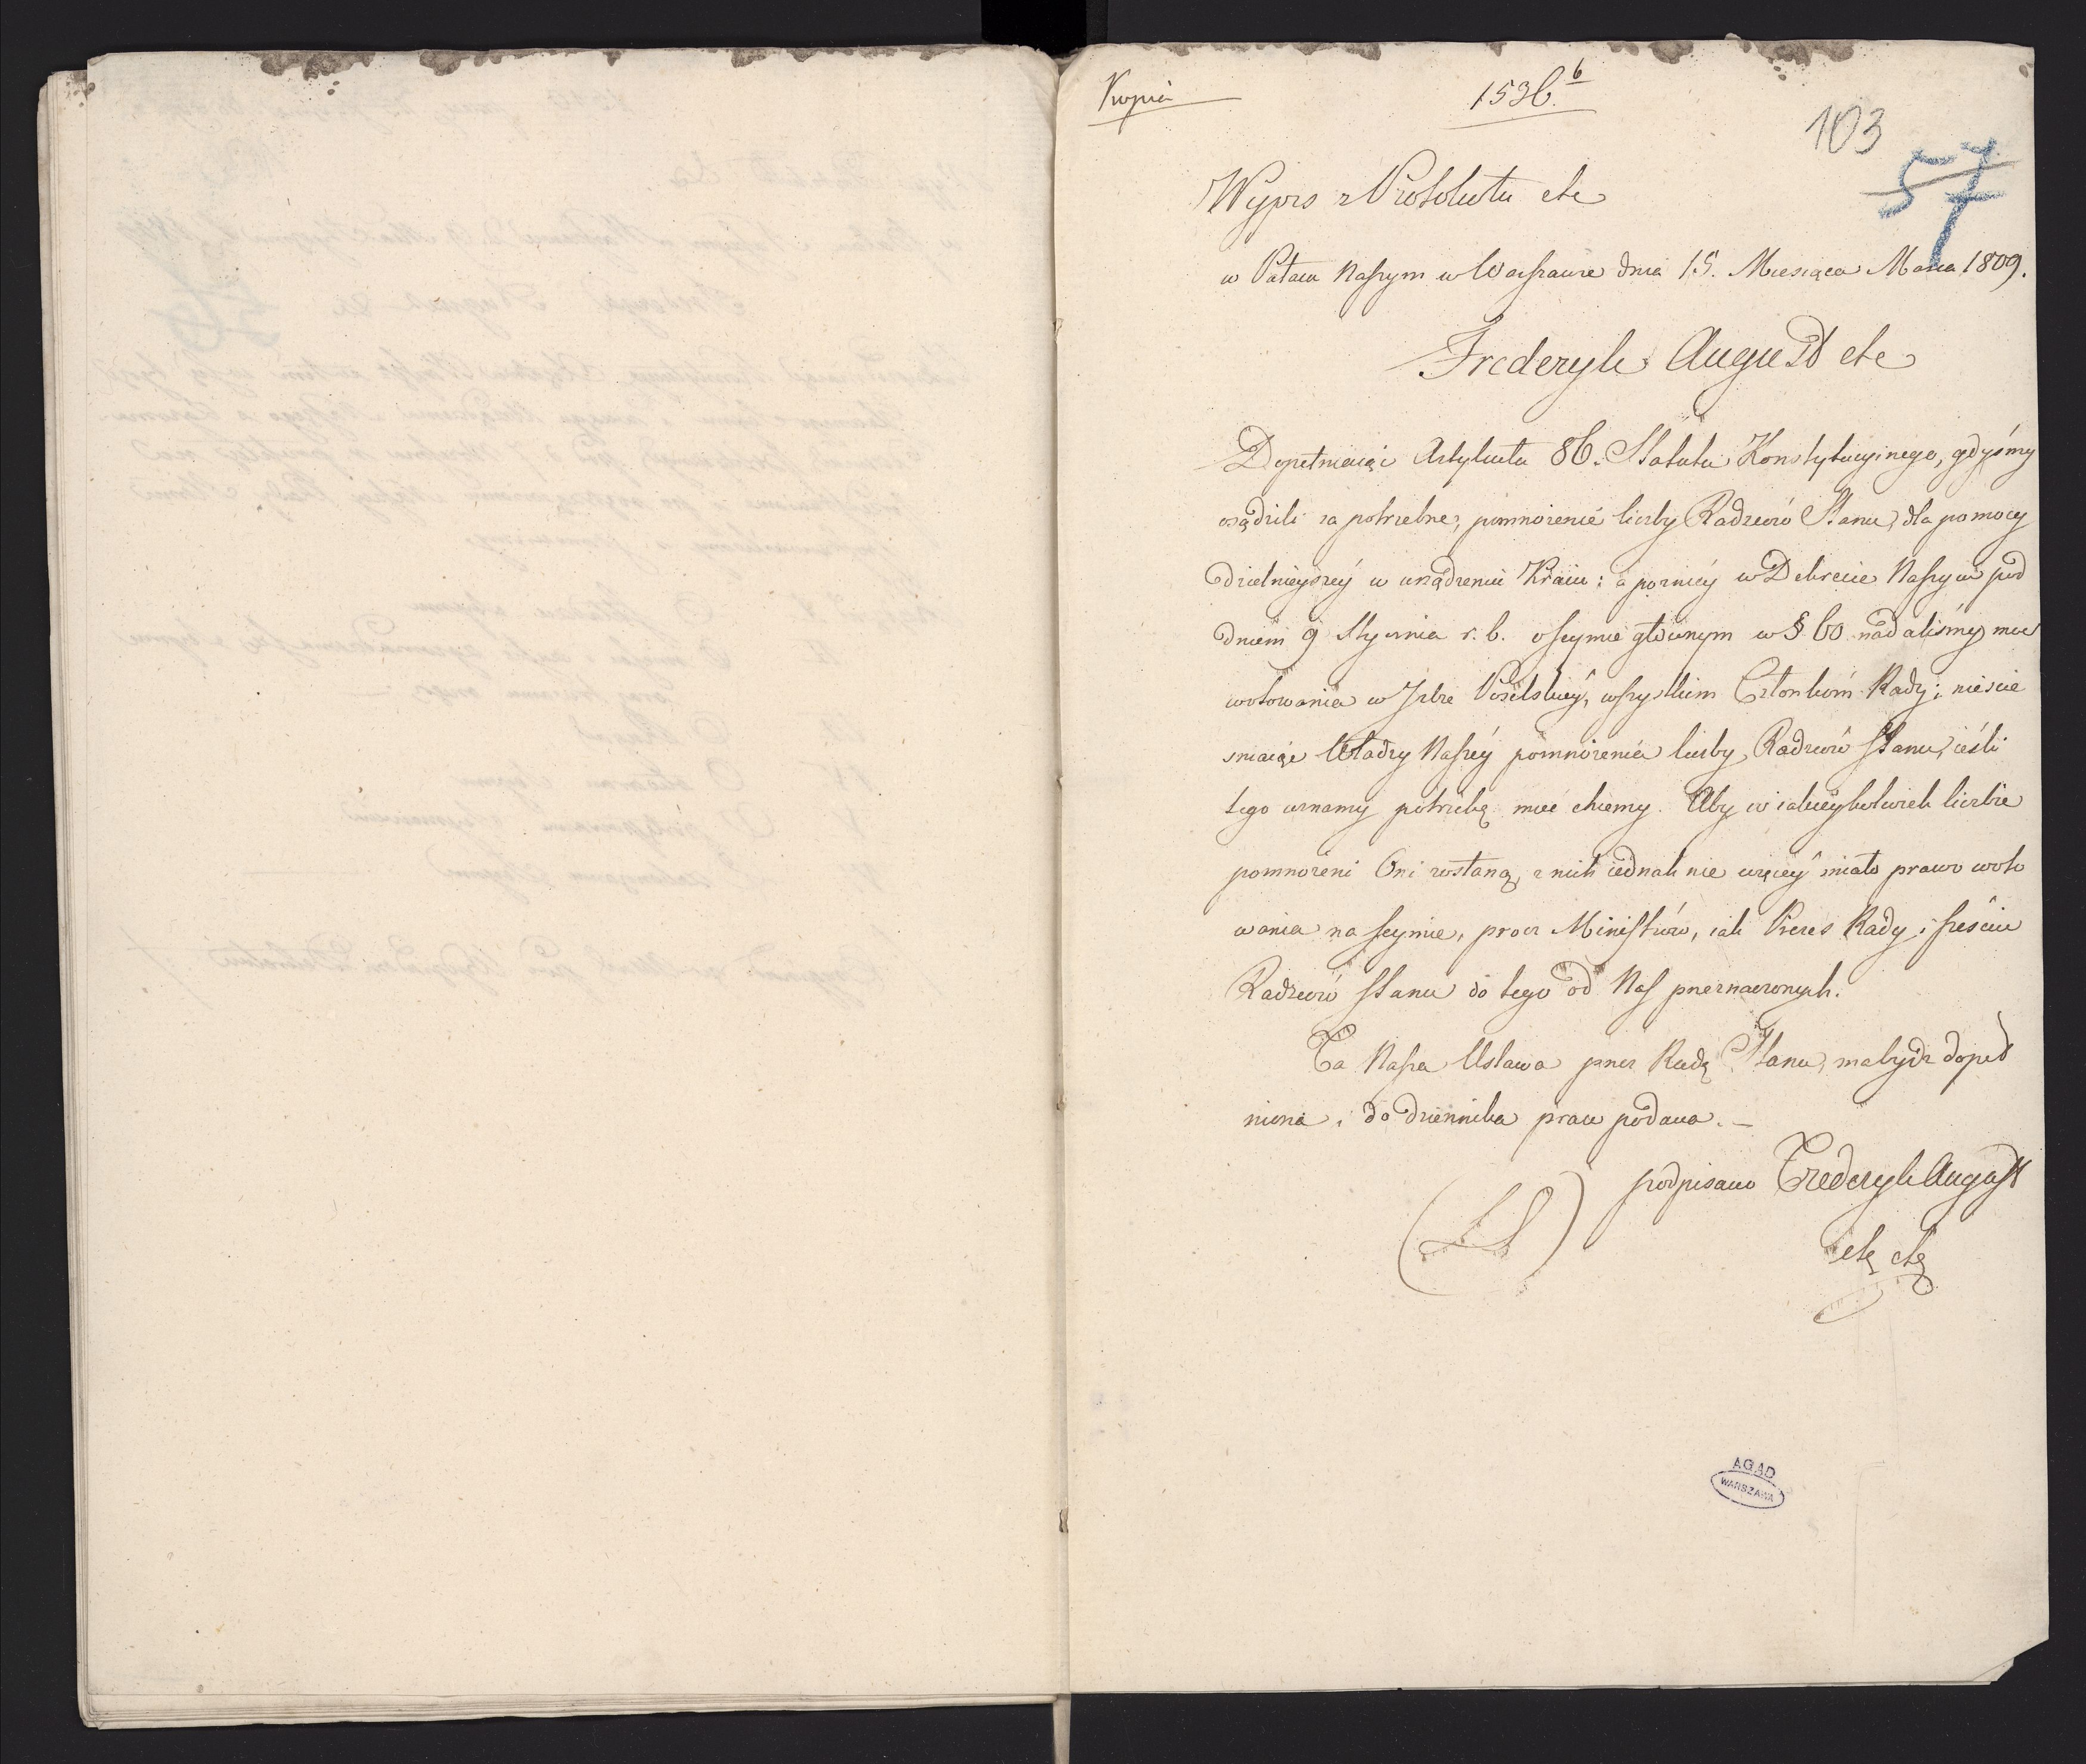 Kopia
1536.b
103
57
Wypis z Protokułu etc
w Pałacu Naszym w Warszawie dnia 15. Miesiąca Marca 1809.
Frederyk August etc
Dopełniaiąc Artykułu 86. Statutu Konstytucyinego, gdyśmy
osądzili za potrzebne, pomnożenie liczby Radzców Stanu, dla pomocy
dzielnieyszey w urządzeniu Kraiu: a poźniey w Dekrecie Naszym pod
dniem 9 Stycznia r. b. o seymie głównym w § 60 nadaliśmy moc
wotowania w Izbie Poselskiey, wszystkim Członkom Rady; nieście
sniaiąc Władzy Naszey pomnożenia liczby Radzców Stanu, ieśli
tego uznamy potrzebę mieć chcemy. Aby w iakieykolwiek liczbie
pomnożeni Oni zostaną, z nich iednak nie więcey miało prawo woto
wania na seymie, procz Ministrów, iak Prezes Rady i sześciu
Radzców Stanu do tego od Nas przeznaczonych.
Ta Nasza Ustawa przez Radę Stanu, ma bydz dopeł
niona, i do dziennika praw podana. —
podpisano Frederyk August
(LS)
etc etc
AGAD
WARSZAWA